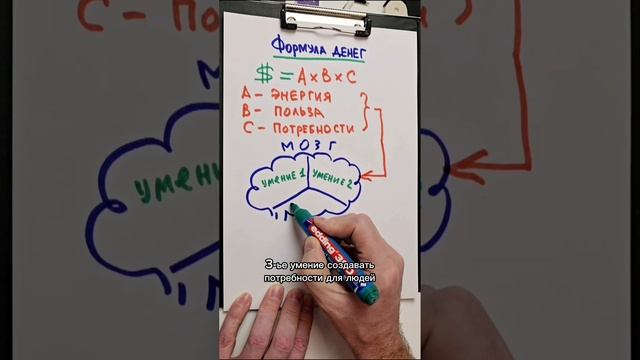 Формула денег
$ = A x B x C
A - Энергия
B - Польза
C - Потребности
МОЗГ
умение 1 умение 2
edding
3-ье умение создавать
потребности для людей